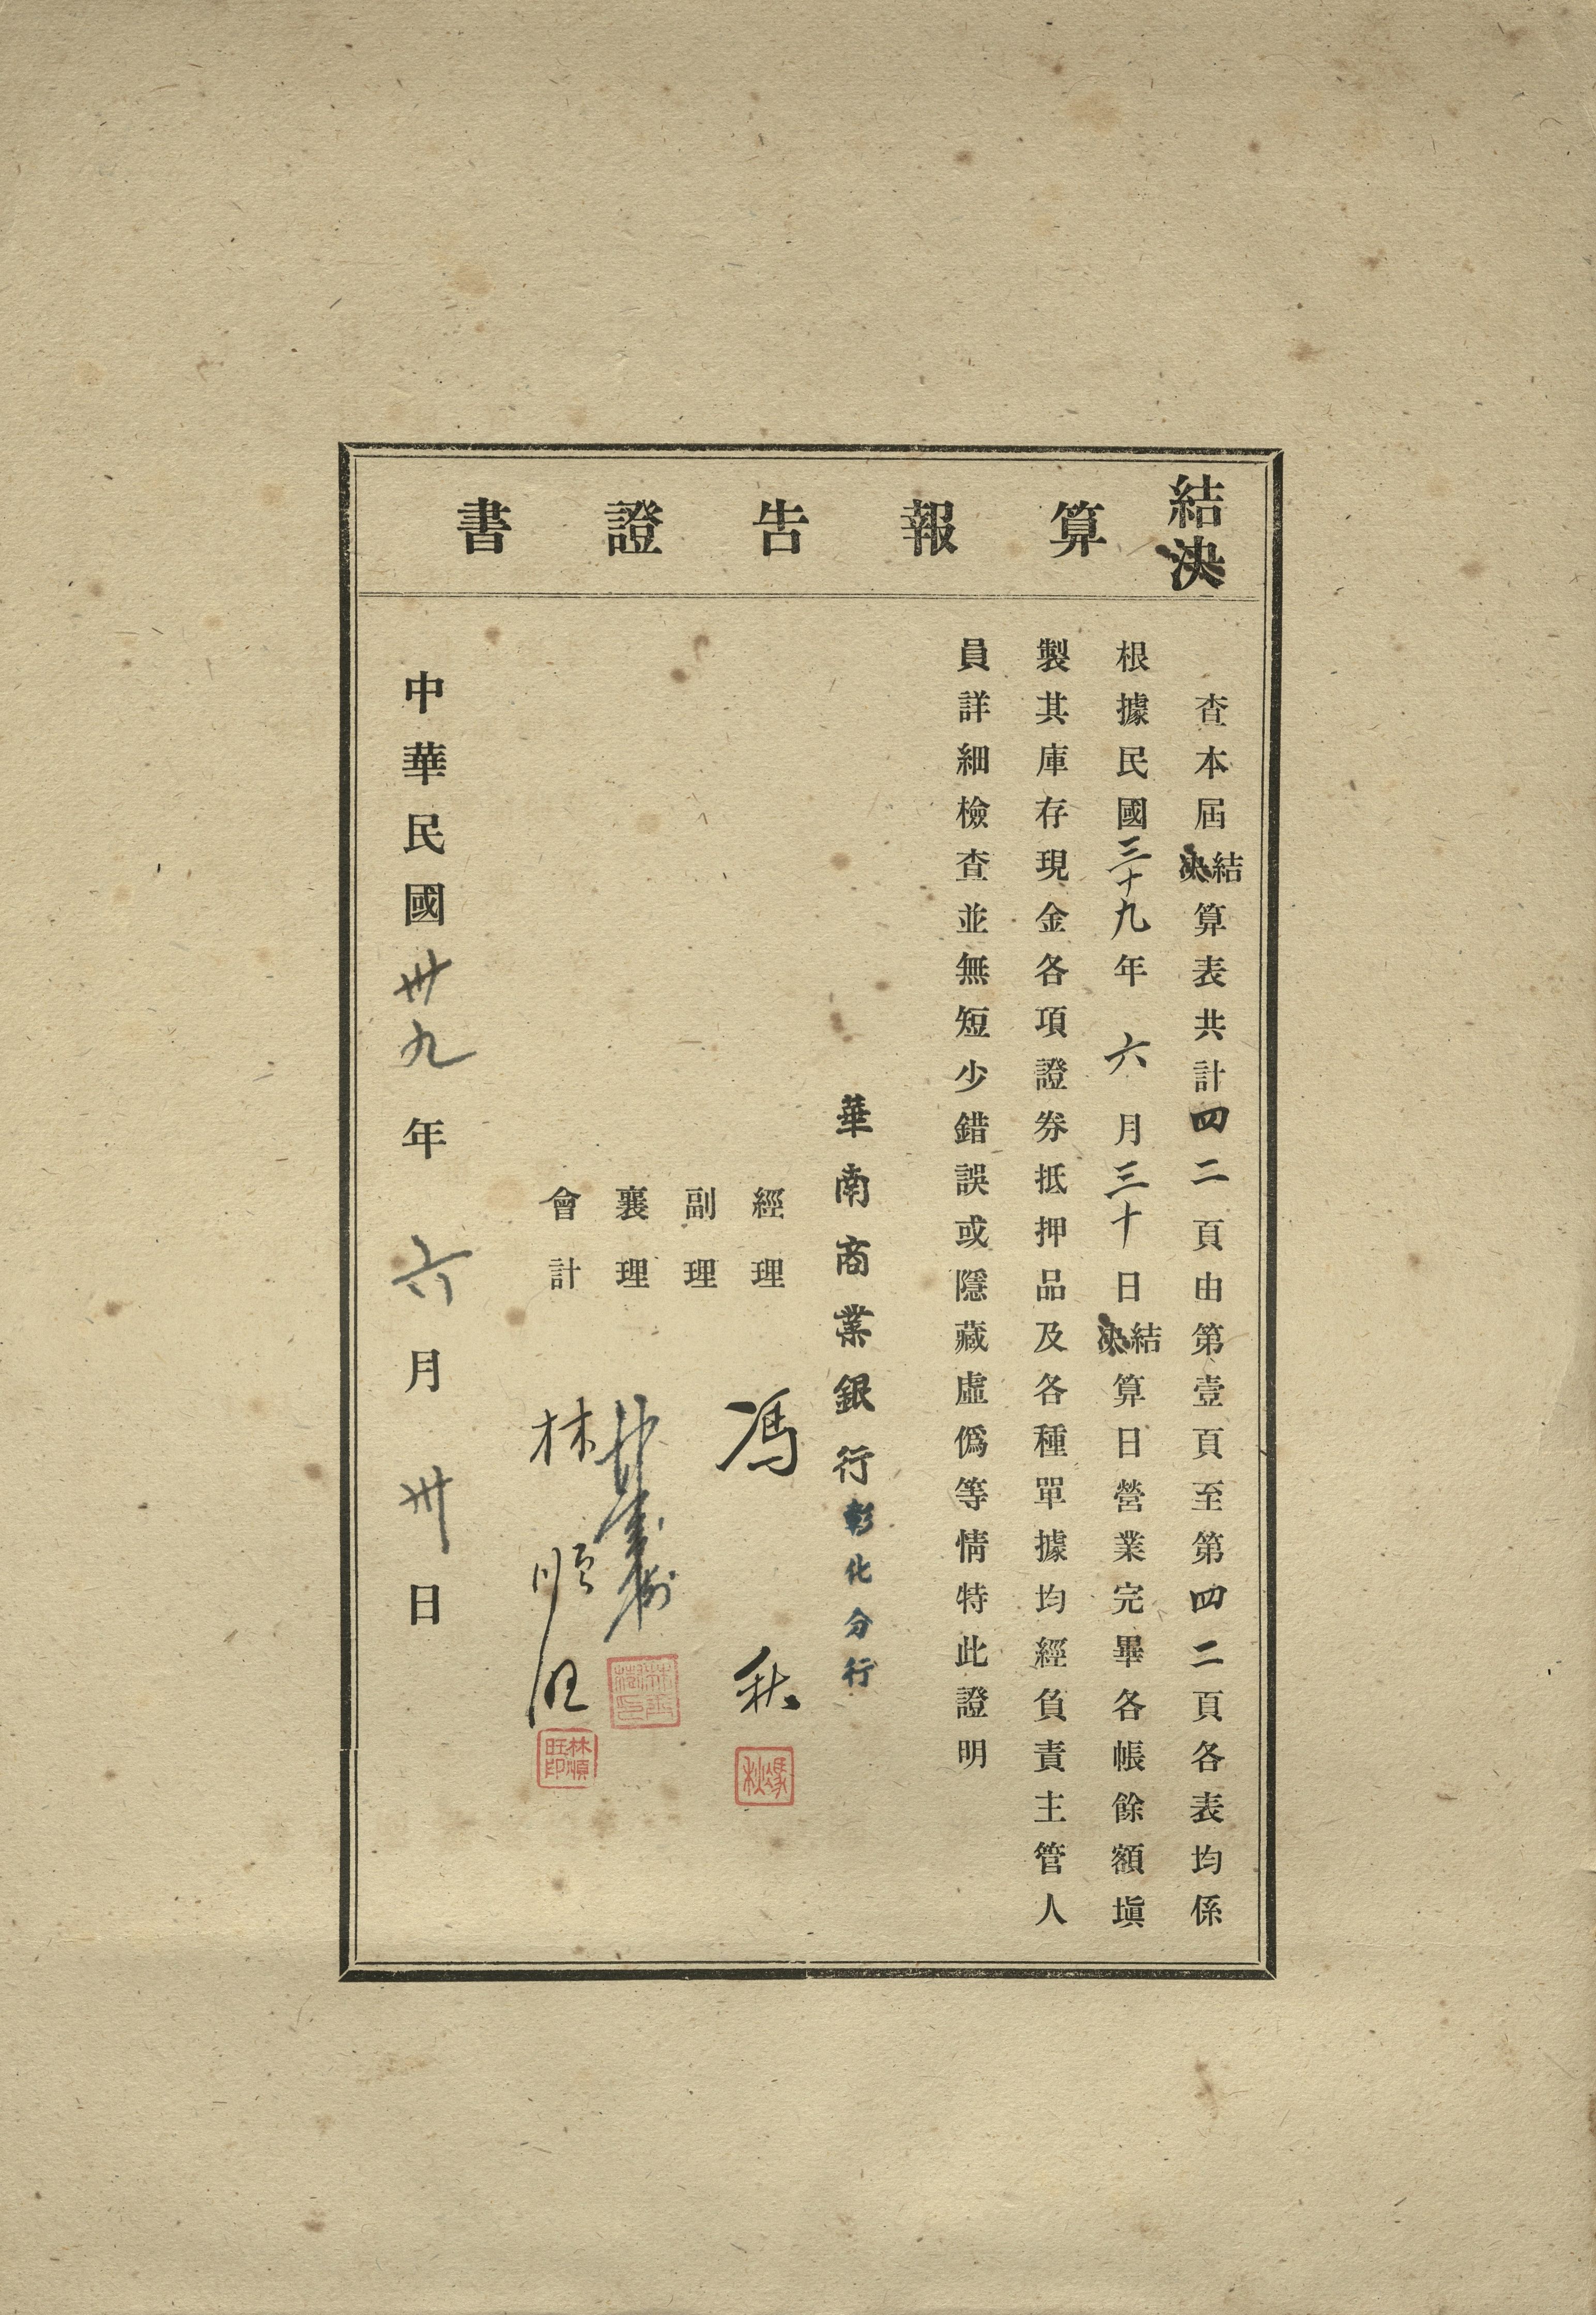 結決算報告證書
查本屆結決算表共計四二頁由第壹頁至第四二頁各表均係
根據民國三十九年六月三十日結決算日營業完畢各帳餘額塡
製其庫存現金各項證劵抵押品及各種單據均經負責主管人
員詳細檢查並無短少錯誤或隱藏虛僞等情特此證明
華南商業銀行彰化分行
經理 馮秋
馮秋
副理
襄理
會計 林順旺
林順旺印
中華民國卅九年六月卅日